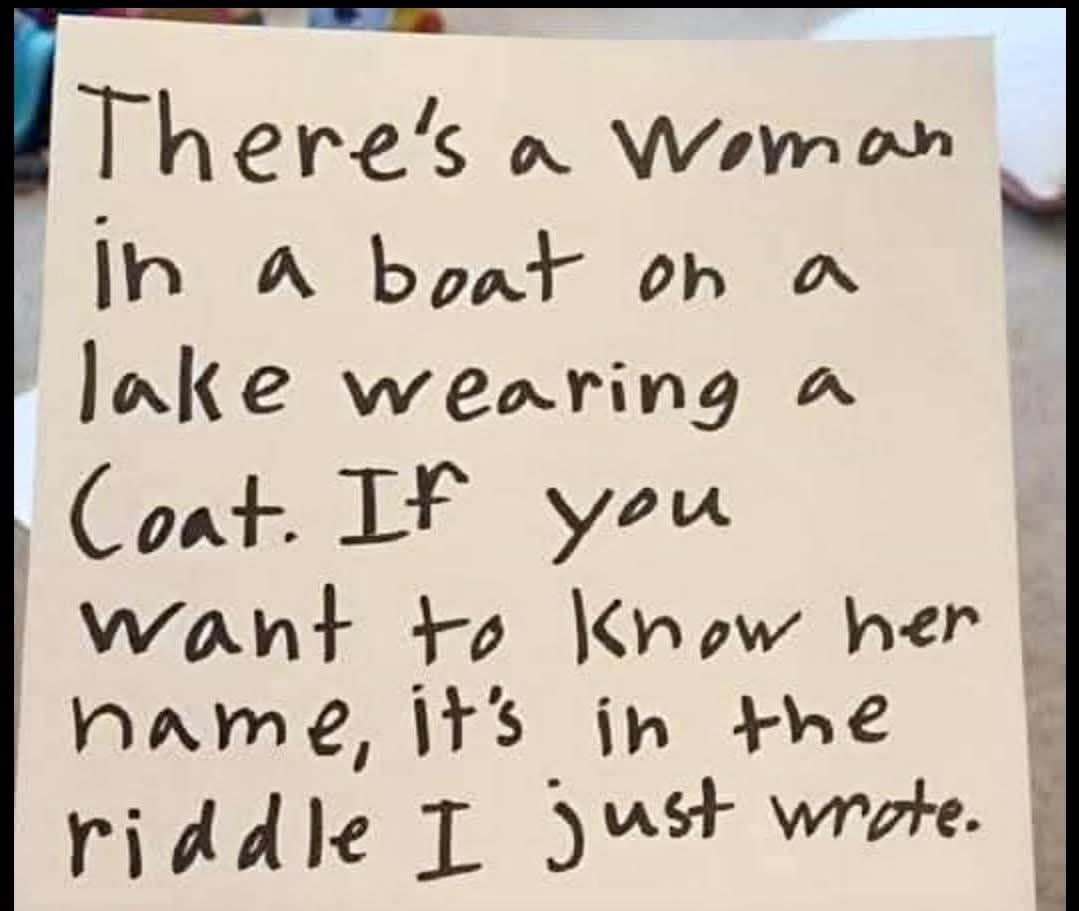 There's a Woman
in a boat on a
lake wearing a
Coat. If you
want to know her
name, it's in the
riddle I just wrote.